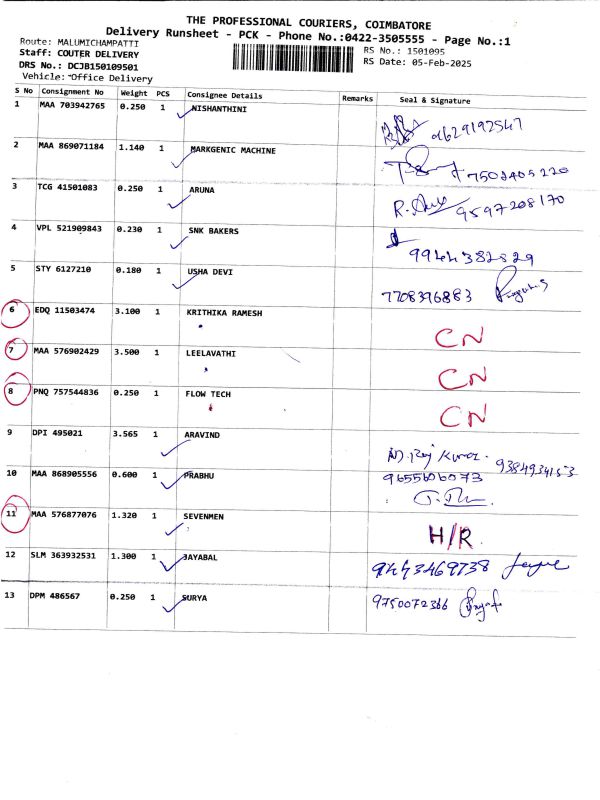 THE PROFESSIONAL COURIERS, COIMBATORE
Delivery Runsheet - PCK - Phone No.:0422-3505555 - Page No.:1
Route: MALUMICHAMPATTI
RS No.: 1501095
Staff: COUTER DELIVERY
RS Date: 05-Feb-2025
DRS No.: DCJB150109501
Vehicle: Office Delivery
S No Consignment No Weight PCS Consignee Details Remarks Seal & Signature
1 MAA 703942765 0.250 1 NISHANTHINI 9629192547
2 MAA 869071184 1.140 1 MARKGENIC MACHINE
3 TCG 41501083 0.250 1 ARUNA 9597208170
4 VPL 521909843 0.230 1 SNK BAKERS
5 STY 6127210 0.180 1 USHA DEVI 7708396883
6 EDQ 11503474 3.100 1 KRITHIKA RAMESH CN
7 MAA 576902429 3.500 1 LEELAVATHI CN
8 PNQ 757544836 0.250 1 FLOW TECH CN
9 DPI 495021 3.565 1 ARAVIND
10 MAA 868905556 0.600 1 PRABHU
11 MAA 576877076 1.320 1 SEVENMEN H/R
12 SLM 363932531 1.300 1 JAYABAL 9443469738
13 DPM 486567 0.250 1 SURYA 9750072366